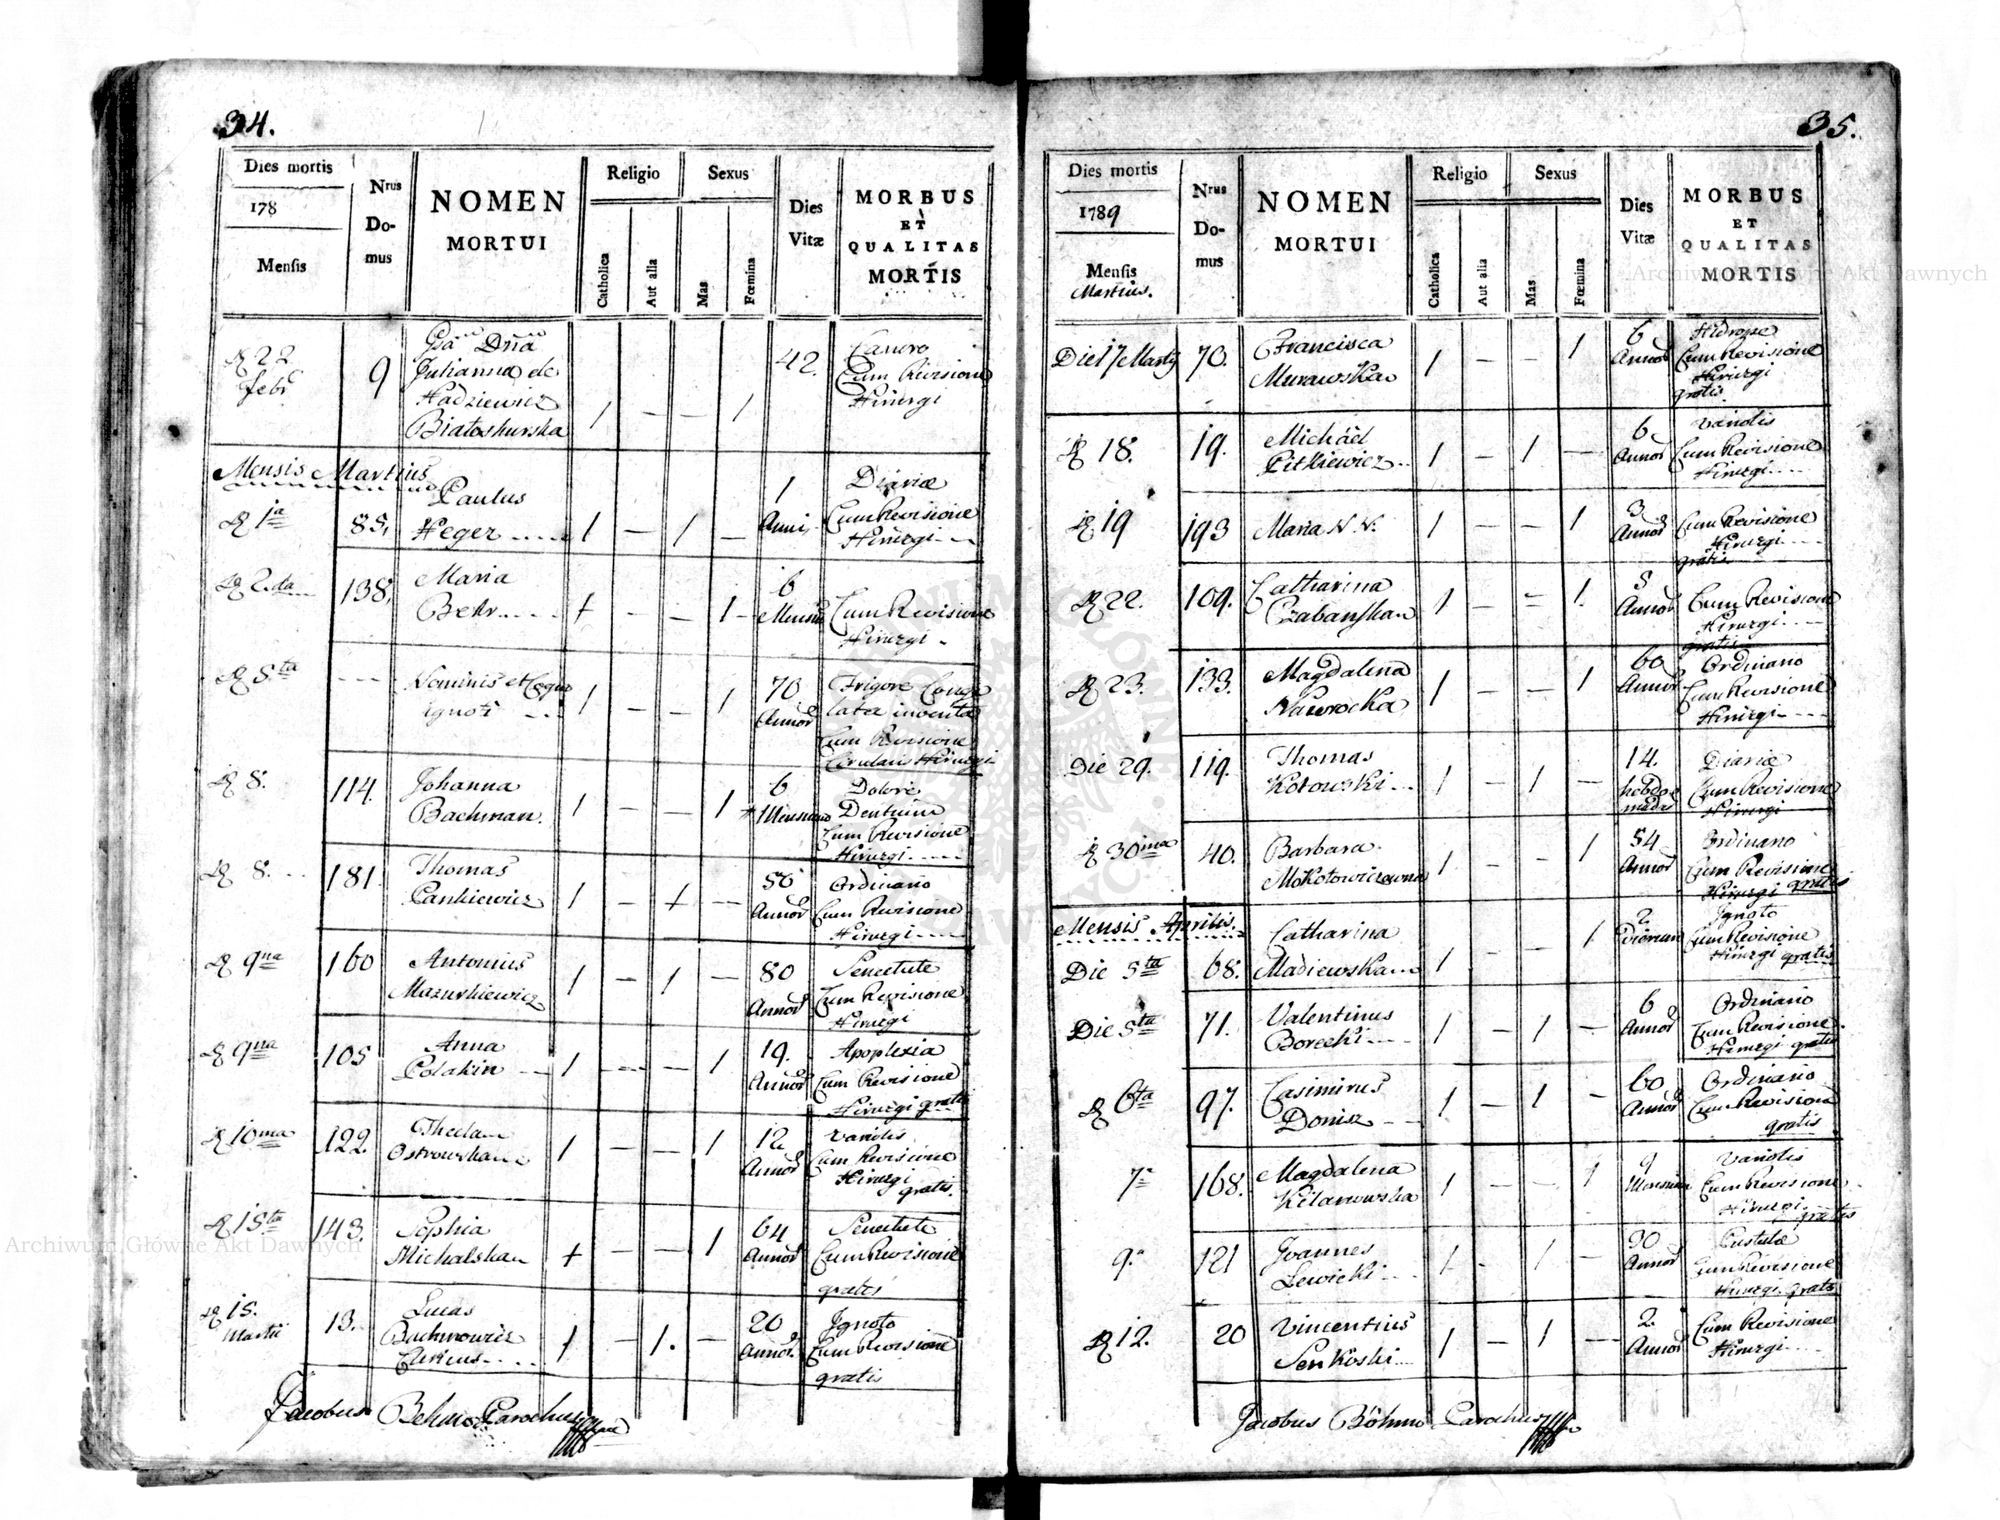 34.
Dies mortis
178
Mensis
Nrus
Do-
mus
NOMEN
MORTUI
Religio
Catholica
Aut alia
Sexus
Mas
Fœmina
Dies
Vitæ
MORBUS
ET
QUALITAS
MORTIS
22
febr
9
Dña
Julianna de
Hadziewicz
Białoskurska
/ — — /
42.
Cum Revisione
Hirurgi
Mensis Martius
1a
85.
Paulus
Heger
/ — / —
1
Anni
Diariæ
Cum Revisione
Hirurgi
2da
138.
Maria
Behr
+ — — /
6
Mensium
Cum Revisione
Hirurgi
5ta
Nominis et
ignoti
/ — — /
70
Annor
Frigore Conge
lata inventa
Cum Revisione
Circulari Hirurgi
8.
114.
Johanna
Bachman.
/ — — /
6
Mensium
Dolore
Dentium
Cum Revisione
Hirurgi
8.
181.
Thomas
Pankiewicz
/ — + —
56
Annor
Ordinario
Cum Revisione
Hirurgi
9na
160
Antonius
Mazurkiewicz
/ — / —
80
Annor
Senectute
Cum Revisione
Hirurgi
9na
105
Anna
Polakin
/ — — /
19.
Annor
Apoplexia
Cum Revisione
Hirurgi gratis
10ma
122.
Theclа
Ostrowska
/ — — /
12
Annor
Variolis
Cum Revisione
Hirurgi
gratis.
15ta
143.
Sophia
Michalska
+ — — /
64
Annor
Senectute
Cum Revisione
gratis
15.
Martii
13.
Lucas
Bachmowicz
/ — / —
20
Annor
Ignoto
Cum Revisione
gratis
Jacobus Behm Parochus
35.
Dies mortis
1789
Mensis
Martius.
Nrus
Do-
mus
NOMEN
MORTUI
Religio
Catholica
Aut alia
Sexus
Mas
Fœmina
Dies
Vitæ
MORBUS
ET
QUALITAS
MORTIS
Die 17 Martij
70.
Francisca
Murawska
/ — — /
6
Annor
Hidropse
Cum Revisione
Hirurgi
gratis.
18.
19.
Michäel
Pitkiewicz
/ — / —
6
Annor
Variolis
Cum Revisione
Hirurgi
19
193
Maria N. N.
/ — — /
3
Annor
Cum Revisione
Hirurgi
gratis
22.
109.
Catharina
Czabanska
/ — = /
5
Annor
Cum Revisione
Hirurgi
gratis
23.
133.
Magdalena
Nawrocka
/ — — /
60
Annor
Ordinario
Cum Revisione
Hirurgi
Die 29.
119.
Thomas
Kotowski
/ — / —
14.
hebdo
mada
Diariæ
Cum Revisione
Hirurgi
30ma
40.
Barbara
Mokotowiczowna
/ — — /
54
Annor
Ordinario
Cum Revisione
Hirurgi gratis
Mensis Aprilis.
Die 5ta
68.
Catharina
Madiewska
/ — — /
2
Ignoto
Cum Revisione
Hirurgi gratis
Die 5ta
71.
Valentinus
Borecki
/ — / —
6
Annor
Ordinario
Cum Revisione
Hirurgi gratis
6ta
97.
Casimirus
Donisz
/ — / —
60
Annor
Ordinario
Cum Revisione
gratis
7a
168.
Magdalena
Kilanowska
/ — — /
9
Mensium
Variolis
Cum Revisione
Hirurgi
gratis
9a
121
Joannes
Lewicki
/ — / —
30
Annor
Pustulæ
Cum Revisione
Hirurgi gratis
12.
20
Vincentius
Senkoski
/ — / —
2
Annor
Cum Revisione
Hirurgi
Jacobus Böhm Parochus
Archiwum Główne Akt Dawnych
Archiwum Główne Akt Dawnych